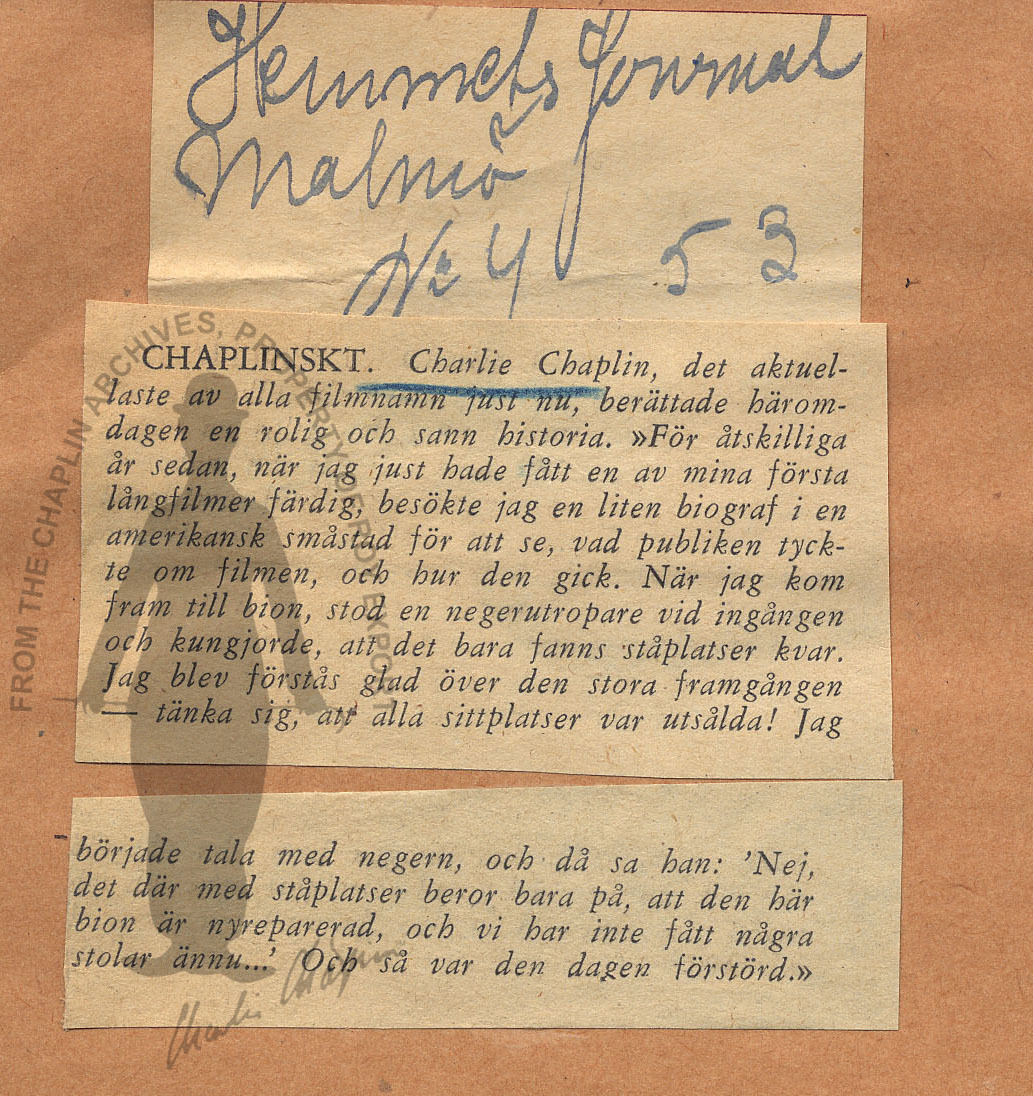 Hemmets Journal
Malmö
No 4 53
CHAPLINSKT. Charlie Chaplin, det aktuel-
laste av alla filmnamn just nu, berättade härom-
dagen en rolig och sann historia. »För åtskilliga
år sedan, när jag just hade fått en av mina första
långfilmer färdig, besökte jag en liten biograf i en
amerikansk småstad för att se, vad publiken tyck-
te om filmen, och hur den gick. När jag kom
fram till bion, stod en negerutropare vid ingången
och kungjorde, att det bara fanns ståplatser kvar.
Jag blev förstås glad över den stora framgången
— tänka sig, att alla sittplatser var utsålda! Jag
började tala med negern, och då sa han: 'Nej,
det där med ståplatser beror bara på, att den här
bion är nyreparerad, och vi har inte fått några
stolar ännu...' Och så var den dagen förstörd.»
FROM THE CHAPLIN ARCHIVES, PROPERTY OF ROY EXPORT
Charlie Chaplin